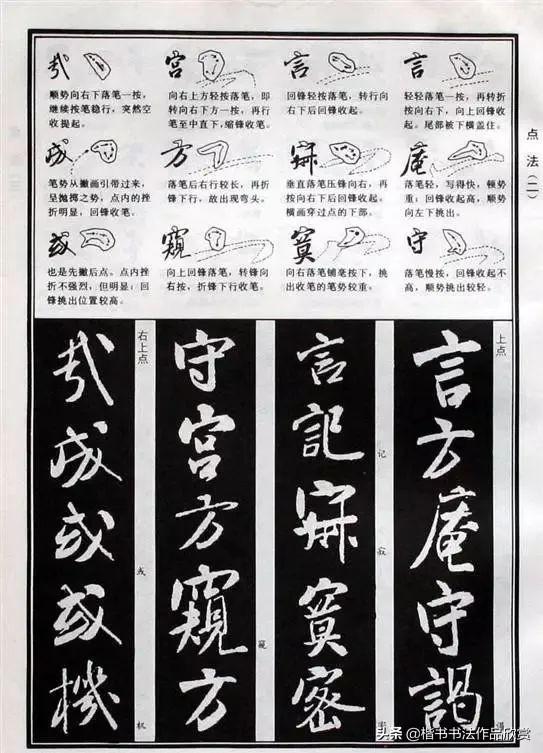 点法(二)
言
轻轻落笔一按，再转折
按向右下，向上回锋收
起。尾部被下横盖住。
庵
落笔轻，写得快，顿势
重；回锋收起高，顺势
向左下挑出。
守
落笔慢按，回锋收起不
高，顺势挑出较轻。
言
回锋轻按落笔，转行向
右下后回锋收起。
寂
垂直落笔压锋向右，再
按向右下后回锋收起。
横画穿过点的下部。
寞
向右落笔铺毫按下，挑
出收笔的笔势较重。
宫
向右上方轻按落笔，即
转向右下方一按，再行
笔至中直下，缩锋收笔。
方
落笔后右行较长，再折
锋下行，故出现弯头。
窥
向上回锋落笔，转锋向
右按，折锋下行收笔。
哉
顺势向右下落笔一按，
继续按笔稳行，突然空
收提起。
成
笔势从撇画引带过来，
呈抛掷之势，点内的挫
折明显，回锋收笔。
或
也是先撇后点。点内挫
折不强烈，但明显；回
锋挑出位置较高。
上点
言方庵守謁
谒
言記寂寞密
记
寂
守宫方窺方
窥
右上点
哉成或或機
或
机
头条 @楷书书法作品欣赏